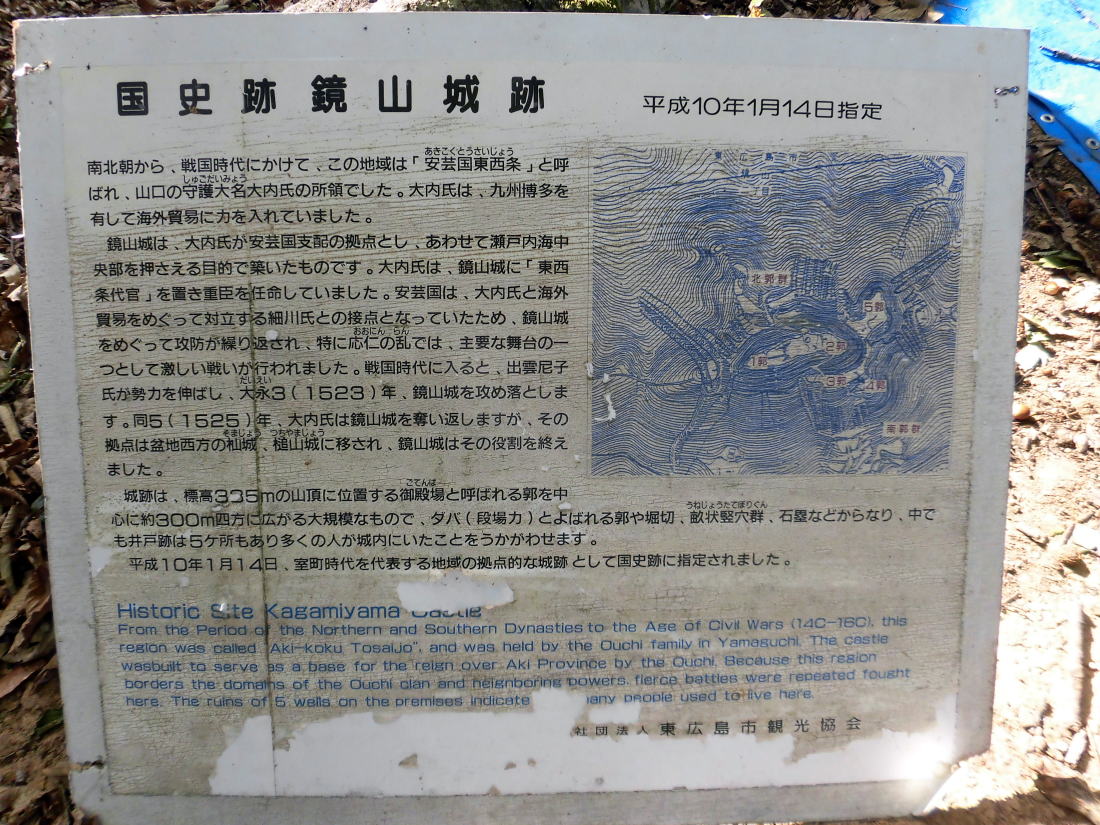 国史跡鏡山城跡
平成10年1月14日指定
あきこくとうさいじょう
南北朝から、戦国時代にかけて、この地域は「安芸国東西条」と呼
しゅごだいみょう
ばれ、山口の守護大名大内氏の所領でした。大内氏は、九州博多を
有して海外貿易に力を入れていました。
鏡山城は、大内氏が安芸国支配の拠点とし、あわせて瀬戸内海中
央部を押さえる目的で築いたものです。大内氏は、鏡山城に「東西
条代官」を置き重臣を任命していました。安芸国は、大内氏と海外
貿易をめぐって対立する細川氏との接点となっていたため、鏡山城
おおにん らん
をめぐって攻防が繰り返され、特に応仁の乱では、主要な舞台の一
つとして激しい戦いが行われました。戦国時代に入ると、出雲尼子
だいえい
氏が勢力を伸ばし、大永3(1523)年、鏡山城を攻め落としま
す。同5(1525)年、大内氏は鏡山城を奪い返しますが、その
そまじょう つちやまじょう
拠点は盆地西方の杣城、槌山城に移され、鏡山城はその役割を終え
ました。
ごてんば
城跡は、標高335mの山頂に位置する御殿場と呼ばれる郭を中
うねじょうたてぼりぐん
心に約300m四方に広がる大規模なもので、ダバ(段場カ)とよばれる郭や堀切、畝状竪穴群、石塁などからなり、中で
も井戸跡は5ケ所もあり多くの人が城内にいたことをうかがわせます。
平成10年1月14日、室町時代を代表する地域の拠点的な城跡として国史跡に指定されました。
東広島市
鏡山
北郭群
5郭
2郭
1郭
3郭
4郭
南郭群
Historic Site Kagamiyama Castle
From the Period of the Northern and Southern Dynasties to the Age of Civil Wars (14C-16C), this
region was called "Aki-koku Tosaijo", and was held by the Ouchi family in Yamaguchi. The castle
wasbuilt to serve as a base for the reign over Aki Province by the Ouchi. Because this region
borders the domains of the Ouchi clan and neighboring powers, fierce battles were repeated fought
here. The ruins of 5 wells on the premises indicate many people used to live here.
社団法人 東広島市観光協会